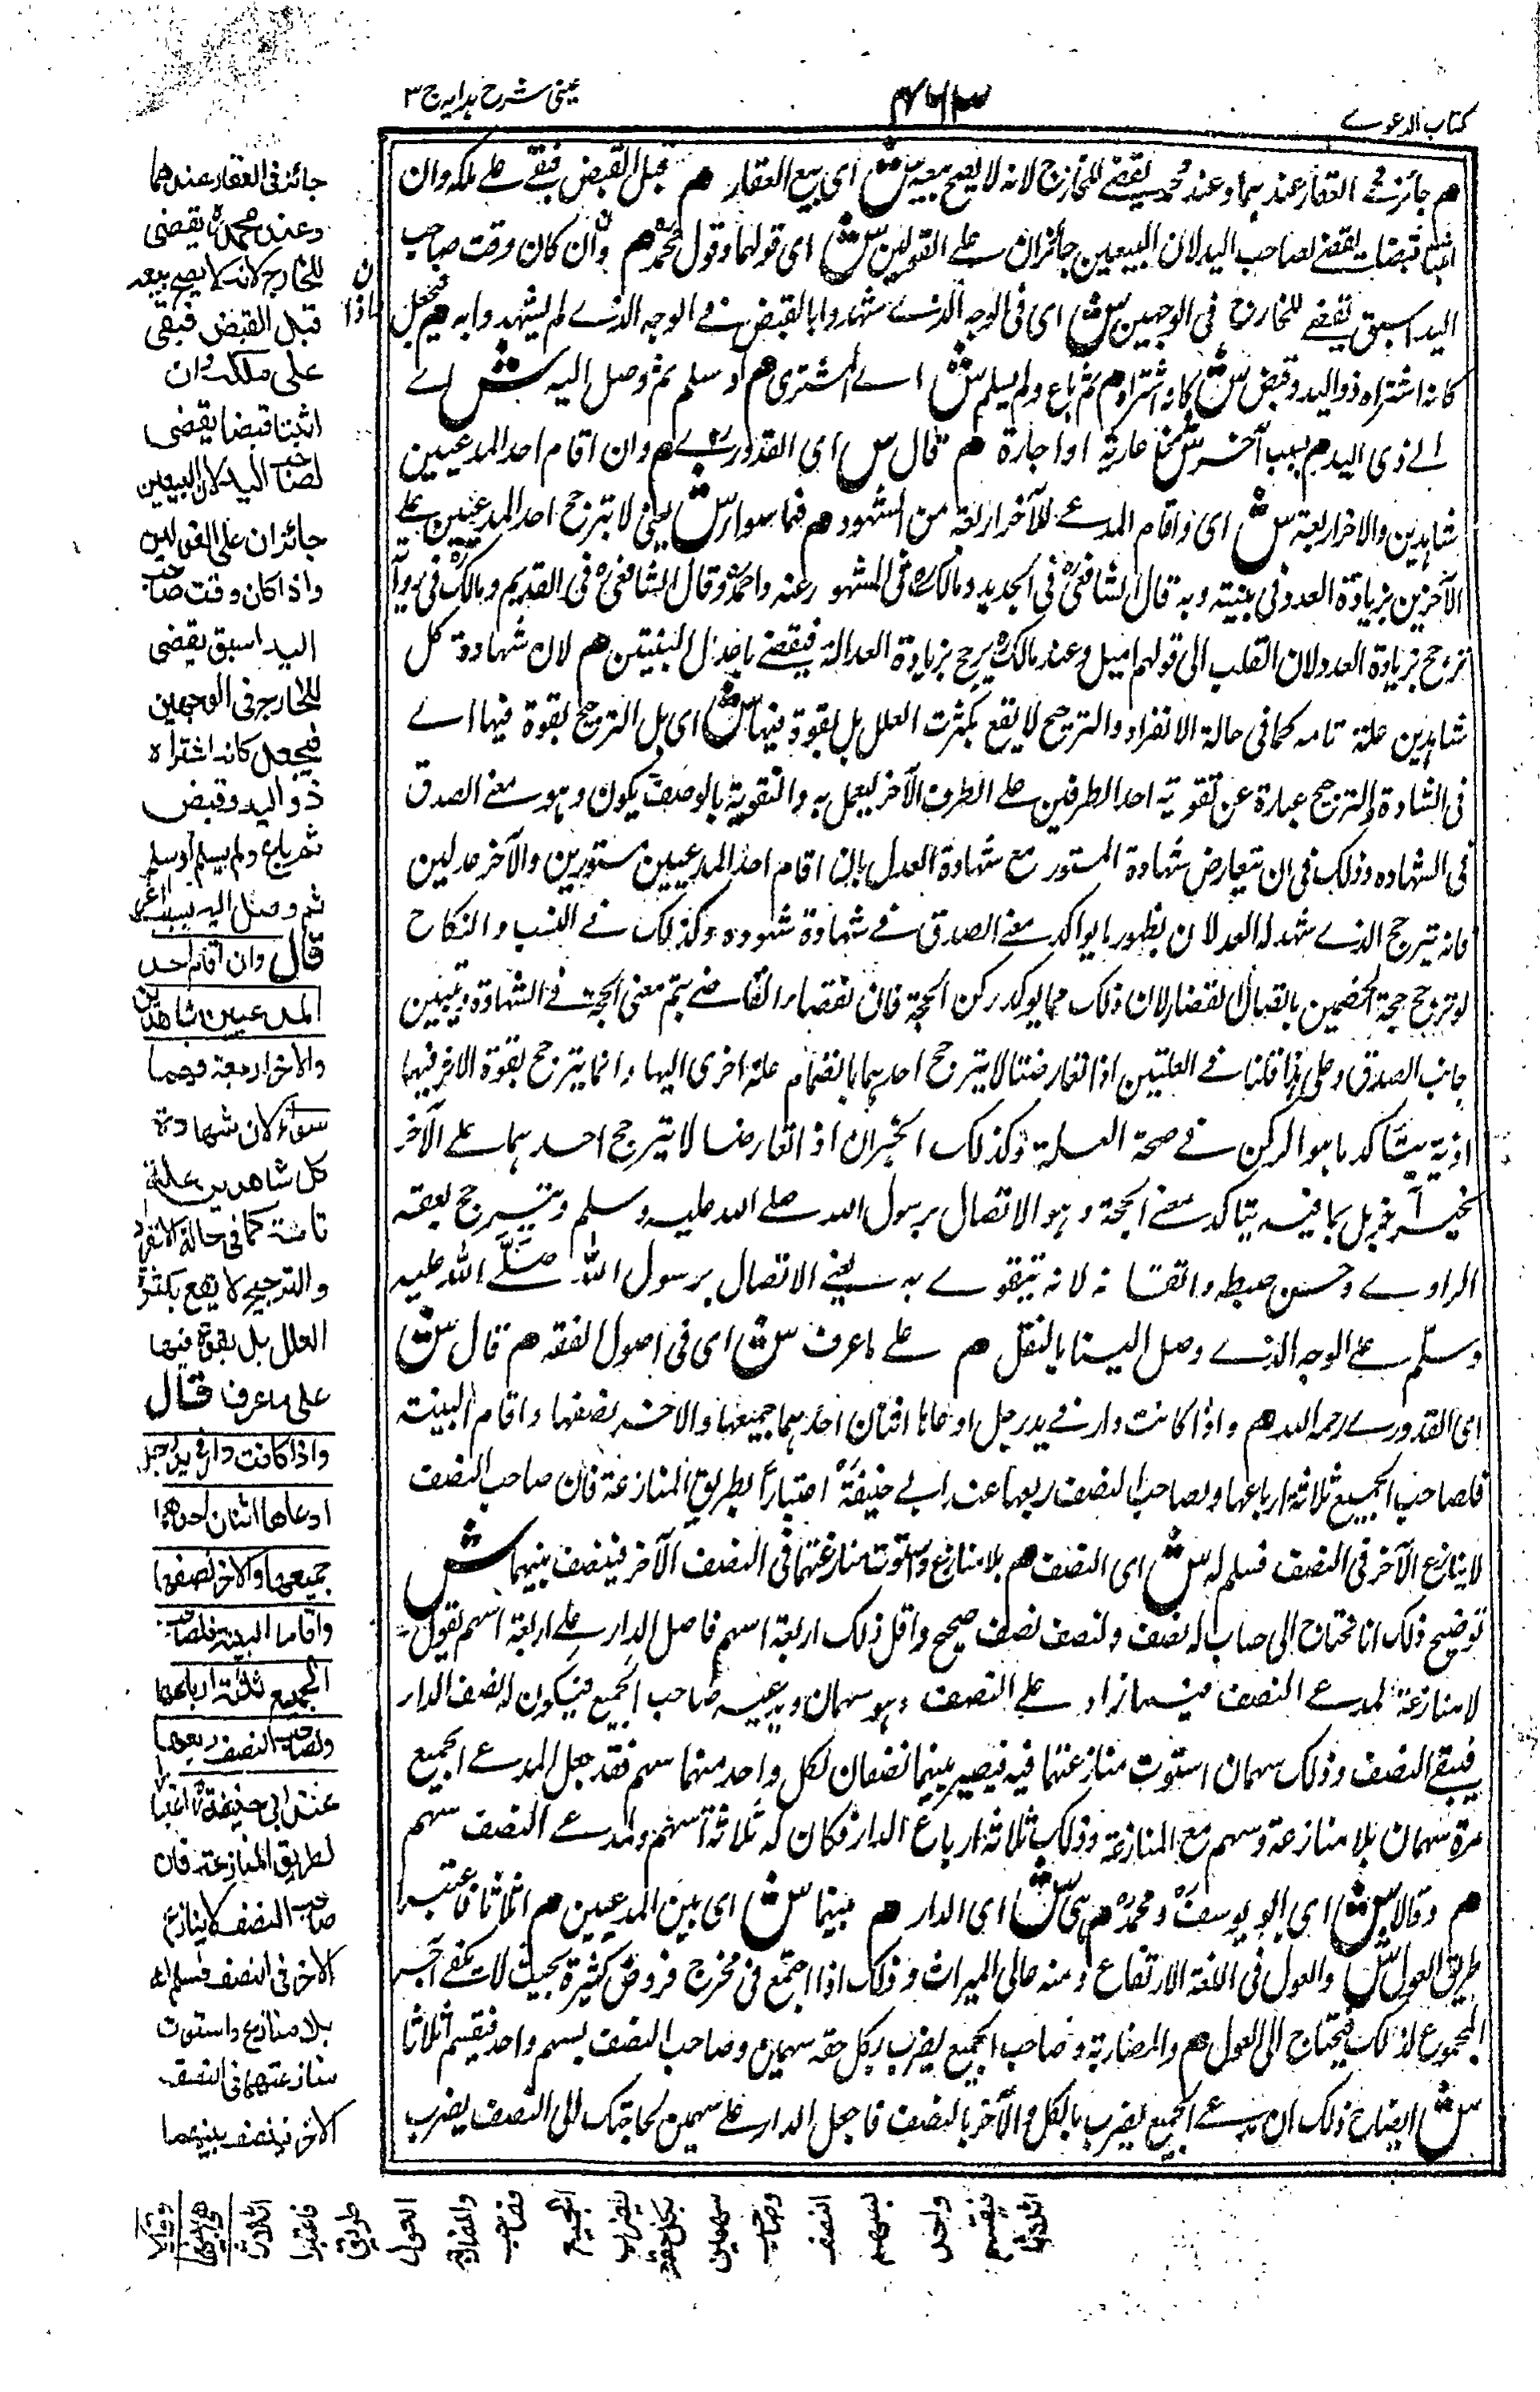 كتاب الدعوے
عينى شرح ہدايہ ج ٣
ھم جائز فے العقار عند ہما وعند محمد يقضے للخارج لانہ لا يصح بيعہ ش اى بيع العقار ھم قبل القبض فبقے علے ملكہ وان
اثبتا قبضا يقضے لصاحب اليد لان البيعين جائزان علے القولين ش اى قولهما وقول محمد ھم وان كان وقت صاحب
اليد اسبق يقضے للخارج فى الوجهين ش اى فى الوجہ الذے شهدوا بالقبض وفے الوجہ الذے لم يشهدوا بہ ھم فيجعل
كانہ اشتراہ ذو اليد وقبض ش كانہ اشتراہ ھم ثم باع ولم يسلم ش اے الى المشترى ھم او سلم ثم وصل اليہ ش اے
الے ذى اليد ھم بسبب آخر ش نحو عارية او اجارة ھم قال ش اى القدورے ھم وان اقام احد المدعيين
شاہدين والاخر اربعة ش اى واقام المدعے الآخر اربعة من الشهود ھم فهما سواء ش يعنى لا يترجح احد المدعيين علے
الآخر بزيادة العدد فى بينتہ وبہ قال الشافعى فى الجديد ومالك فى المشهور عنہ واحمد وقال الشافعى فى القديم ومالك فى رواية
ترجح بزيادة العدد لان القلب الى قولهم اميل وعند مالك يرجح بزيادة العدالة فيقضے باعدل البينتين ھم لان شهادة كل
شاہدين علة تامہ كما فى حالة الانفراد والترجيح لا يقع بكثرت العلل بل بقوة فيها ش اى بل الترجيح بقوة فيها اے
فى الشهادة والترجيح عبارة عن تقوية احد الطرفين علے الطرف الآخر ليعمل بہ والتقوية بالوصف يكون وہو معنے الصدق
فى الشهادہ وذلك فى ان تعارض شهادة المستور مع شهادة العدل بان اقام احد المدعيين مستورين والآخر عدلين
فانہ يترجح الذے شهد لہ العدلان بظهور ما يوكد معنے الصدق فے شهادة شهودہ وكذلك فے النسب والنكاح
لو ترجح حجة الخصمين باتصال القضاء لان ذلك مما يوكد ركن الحجة فان بقضاء القاضے يتم معنى الحجة فے الشهادة ويتبين
جانب الصدق وعلى هذا قلنا فے العلتين اذا تعارضتا لا يترجح احدہما بانضمام علة اخرى اليها وانما يترجح بقوة الاثر فيها
اذ بہ يتاكد ما ہو الركن فے صحة العلة وكذلك الخبران اذا تعارضا لا يترجح احدہما علے الآخر
بخبر آخر بل بما فيہ يتاكد معنے الحجة وہو الاتصال برسول اللہ صلے اللہ عليہ وسلم ويترجح بفقہ
الراوے وحسن ضبطہ واتقانہ لانہ يتقوے بہ يعنے الاتصال برسول اللہ صلے اللہ عليہ
وسلم علے الوجہ الذے وصل الينا بالنقل ھم علے ما عرف ش اى فى اصول الفقہ ھم قال ش
اى القدورے رحمہ اللہ ھم واذا كانت دار فے يد رجل ادعاہا اثنان احدہما جميعها والاخر نصفها واقام البينة
فلصاحب الجميع ثلاثة ارباعها ولصاحب النصف ربعها عند ابے حنيفة اعتبارا بطريق المنازعة فان صاحب النصف
لا ينازع الآخر فى النصف فسلم لہ ش اى النصف ھم بلا منازع واستوت منازعتهما فى النصف الآخر فينصف بينهما ش
توضيح ذلك انا نحتاج الى حساب لہ نصف ولنصف نصف صحيح واقل ذلك اربعة اسهم فاصل الدار علے اربعة اسهم نقول
لا منازعة لمدعے النصف فيما زاد علے النصف وہو سهمان ويدعيہ صاحب الجميع فيكون لہ نصف الدار
فيبقے النصف وذلك سهمان استوت منازعتهما فيہ فيصير بينهما نصفان لكل واحد منهما سهم فقد جعل لمدعے الجميع
مرة سهمان بلا منازعة وسهم مع المنازعة وذلك ثلاثة ارباع الدار فكان لہ ثلاثة اسهم ولمدعے النصف سهم
ھم وقالا ش اى ابو يوسف ومحمد ھم ہى ش اى الدار ھم بينهما ش اى بين المدعيين ھم اثلاثا فاعتبرا
طريق العول ش والعول فى اللغة الارتفاع ومنہ عالى الميراث وذلك اذا اجتمع فى مخرج فروض كثيرة بحيث لا تكفے اجزاء
المجموع لذلك فيحتاج الى العول ھم والمضاربة فصاحب الجميع يضرب بكل حقہ سهمين وصاحب النصف بسهم واحد فيقسم اثلاثا
ش ايضاح ذلك ان مدعے الجميع يضرب بالكل والآخر بالنصف فاجعل الدار علے سهمين لحاجتك الى النصف يضرب
جائز فى العقار عندهما
وعند محمد يقضى
للخارج لانہ لا يصح بيعہ
قبل القبض فبقى
على ملكہ وان
اثبتا قبضا يقضى
لصاحب اليد لان البيعين
جائزان على القولين
واذا كان وقت صاحب
اليد اسبق يقضى
للخارج فى الوجهين
فيجعل كانہ اشتراہ
ذو اليد وقبض
ثم باع ولم يسلم او سلم
ثم وصل اليہ بسبب اخر
قال وان اقام احد
المدعيين شاهدين
والاخر اربعة فهما
سواء لان شهادة
كل شاهدين علة
تامة كما فى حالة الانفراد
والترجيح لا يقع بكثرة
العلل بل بقوة فيها
على ما عرف قال
واذا كانت دار فى يد رجل
ادعاها اثنان احدهما
جميعها والاخر نصفها
واقاما البينة فلصاحب
الجميع ثلثة ارباعها
ولصاحب النصف ربعها
عند ابى حنيفة اعتبارا
لطريق المنازعة فان
صاحب النصف لا ينازع
الاخر فى النصف فسلم لہ
بلا منازع واستوت
منازعتهما فى النصف
الاخر فينصف بينهما
وقالا
هى بينهما
اثلاثا
فاعتبرا
طريق
العول
والمضاربة
فصاحب
الجميع
يضرب
بكل حقہ
سهمين
وصاحب
النصف
بسهم
واحد
فيقسم
اثلاثا